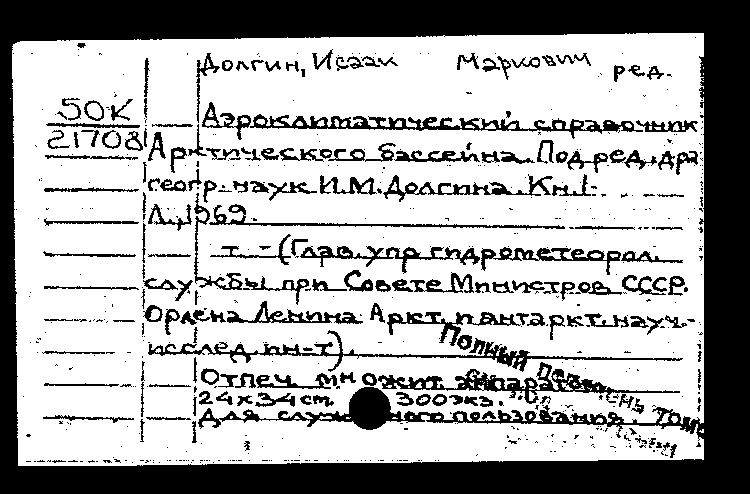 Долгин, Исаак Маркович ред.
50К
21708
Аэроклиматический справочник
Арктического бассейна. Под ред. дра
геогр. наук И.М. Долгина. Кн. 1-
Л., 1969.
т. - (Глав. упр гидрометеорол.
службы при Совете Министров СССР.
Ордена Ленина Аркт. и антаркт. науч.-
исслед. ин-т).
Полный перечень томов
Отпеч. множит. аппаратом
24x34 см. 300 экз.
Для служебного пользования.